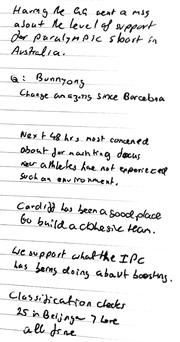 Having the GG sent a msg
about the level of support
for paralympic sport in
Australia.
Q: Bunnyong
Change amazing since Barcelona
Next 48 hrs most concerned
about for maintaing focus
new athletes have not experienced
such an environment.
Cardiff has been a good place
to build a cohesive team.
We support what the IPC
has being doing about boosting.
Classification checks
25 in Beijing 7 here
all fine